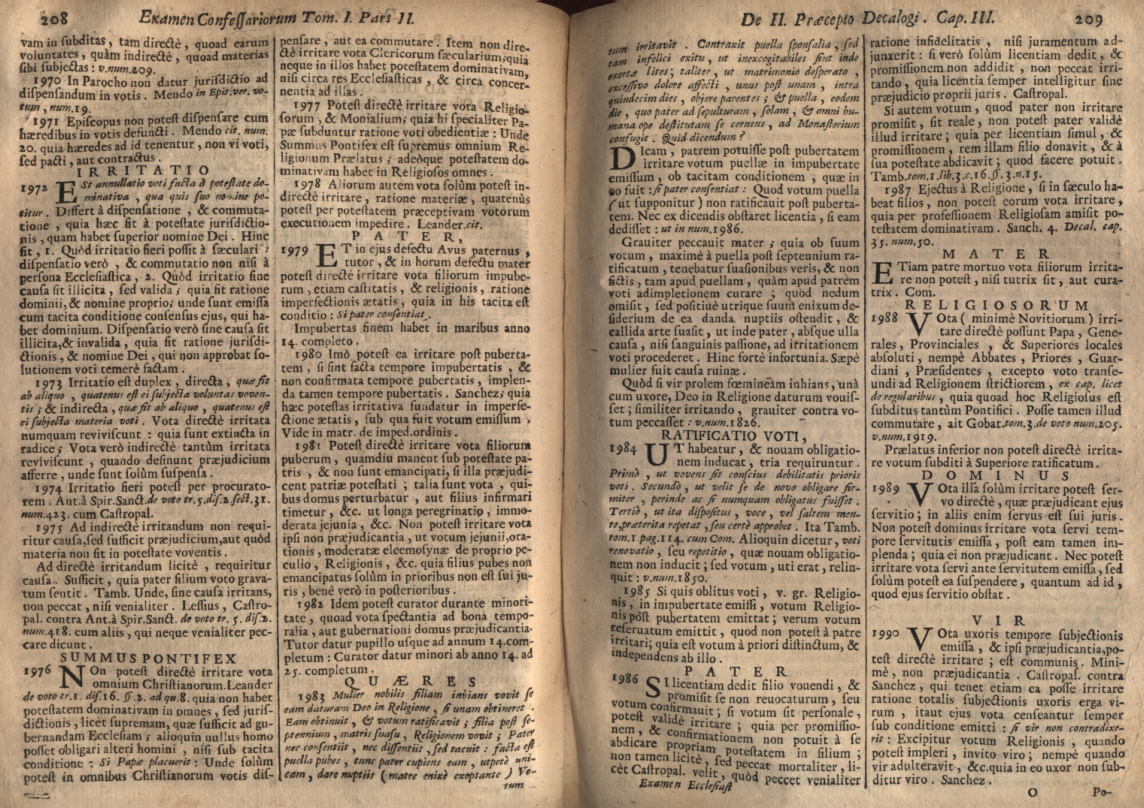 208 Examen Confessariorum Tom. I. Pars II.
vam in subditas, tam directè, quoad earum
voluntates, quàm indirectè, quoad materias
sibi subjectas: v.num.209.
1970 In Parocho non datur jurisdictio ad
dispensandum in votis. Mendo in Epit.ver. vo-
tum, num.19.
1971 Episcopus non potest dispensare cum
hæredibus in votis defuncti. Mendo cit. num.
20. quia hæredes ad id tenentur, non vi voti,
sed pacti, aut contractus.
IRRITATIO
1972 Est annullatio voti facta à potestate do-
minativa, qua quis suo nomine po-
titur. Differt à dispensatione, & commuta-
tione, quia hæc fit à potestate jurisdictio-
nis, quam habet superior nomine Dei. Hinc
fit, 1. Quòd irritatio fieri possit à sæculari:
dispensatio verò, & commutatio non nisi à
persona Ecclesiastica, 2. Quòd irritatio sine
causa sit illicita, sed valida; quia fit ratione
dominii, & nomine proprio; unde sunt emissa
cum tacita conditione consensus ejus, qui ha-
bet dominium. Dispensatio verò sine causa sit
illicita,& invalida, quia fit ratione jurisdi-
ctionis, & nomine Dei, qui non approbat so-
lutionem voti temerè factam.
1973 Irritatio est duplex, directa, quæ fit
ab aliquo, quatenus est ei subjecta voluntas voven-
tis; & indirecta, quæ fit ab aliquo, quatenus est
ei subjecta materia voti. Vota directè irritata
numquam reviviscunt: quia sunt extincta in
radice; Vota verò indirectè tantùm irritata
reviviscunt, quando desinunt præjudicium
afferre, unde sunt solùm suspensa.
1974 Irritatio fieri potest per procurato-
rem. Ant.à Spir.Sanct.de voto tr.5.dis.2.sect.31.
num.423. cum Castropal.
1975 Ad indirectè irritandum non requi-
ritur causa,sed sufficit præjudicium,aut quòd
materia non sit in potestate voventis.
Ad directè irritandum licitè, requiritur
causa. Sufficit, quia pater filium voto grava-
tum sentit. Tamb. Unde, sine causa irritans,
non peccat, nisi venialiter. Lessius, Castro-
pal. contra Ant.à Spir.Sanct. de voto tr. 5. dis.2.
num.418. cum aliis, qui neque venialiter pec-
care dicunt.
SUMMUS PONTIFEX
1976 Non potest directè irritare vota
omnium Christianorum.Leander
de voto tr.1. dis.16. §.2. ad qu.8. quia non habet
potestatem dominativam in omnes, sed juris-
dictionis, licèt supremam, quæ sufficit ad gu-
bernandam Ecclesiam; alioquin nullus homo
posset obligari alteri homini, nisi sub tacita
conditione: Si Papæ placuerit: Unde solùm
potest in omnibus Christianorum votis dis-
pensare, aut ea commutare. Item non dire-
ctè irritare vota Clericorum sæcularium;quia
neque in illos habet potestatem dominativam,
nisi circa res Ecclesiasticas, & circa concer-
nentia ad illas.
1977 Potest directè irritare vota Religio-
sorum, & Monialium; quia hi specialiter Pa-
pæ subduntur ratione voti obedientiæ: Unde
Summus Pontifex est supremus omnium Re-
ligionum Prælatus; adeòque potestatem do-
minativam habet in Religiosos omnes.
1978 Aliorum autem vota solùm potest in-
directè irritare, ratione materiæ, quatenùs
potest per potestatem præceptivam votorum
executionem impedire. Leander.cit.
PATER,
1979 ET in ejus defectu Avus paternus,
tutor, & in horum defectu mater
potest directè irritare vota filiorum impube-
rum, etiam castitatis, & religionis, ratione
imperfectionis ætatis, quia in his tacita est
conditio: Si pater consentiat.
Impubertas finem habet in maribus anno
14. completo.
1980 Imò potest ea irritare post puberta-
tem, si sint facta tempore impubertatis, &
non confirmata tempore pubertatis, implen-
da tamen tempore pubertatis. Sanchez; quia
hæc potestas irritativa fundatur in imperfe-
ctione ætatis, sub qua fuit votum emissum.
Vide in mater. de imped.ordinis.
1981 Potest directè irritare vota filiorum
puberum, quamdiu manent sub potestate pa-
tris, & non sunt emancipati, si illa præjudi-
cent patriæ potestati; talia sunt vota, qui-
bus domus perturbatur, aut filius infirmari
timetur, &c. ut longa peregrinatio, immo-
derata jejunia, &c. Non potest irritare vota
ipsi non præjudicantia, ut votum jejunii,ora-
tionis, moderatæ eleemosynæ de proprio pe-
culio, Religionis, &c. quia filius pubes non
emancipatus solùm in prioribus non est sui ju-
ris, benè verò in posterioribus.
1982 Idem potest curator durante minori-
tate, quoad vota spectantia ad bona tempo-
ralia, aut gubernationi domus præjudicantia.
Tutor datur pupillo usque ad annum 14.com-
pletum: Curator datur minori ab anno 14. ad
25. completum.
QUÆRES
1983 Mulier nobilis filiam inhians vovit se
eam daturam Deo in Religione, si unam obtineret.
Eam obtinuit, & votum ratificavit; filia post se-
ptennium, matris suasu, Religionem vovit; Pater
nec consentiit, nec dissentiit, sed tacuit: facta est
puella pubes, tunc pater cupiens eam, utpotè uni-
cam, dare nuptiis (matre enixè exoptante) Vo-
tum
De II. Præcepto Decalogi. Cap. III. 209
tum irritavit. Contraxit puella sponsalia, sed
tam infelici exitu, ut inexcogitabiles sint inde
exortæ lites; taliter, ut matrimonio desperato,
excessivo dolore affecti, unus post unam, intra
quindecim dies, objere parentes; & puella, eodem
die, quo pater ad sepulturam, solam, & omni hu-
mana ope destitutam se cernens, ad Monasterium
confugit. Quid dicendum?
Dicam, patrem potuisse post pubertatem
irritare votum puellæ in impubertate
emissum, ob tacitam conditionem, quæ in
eo fuit: si pater consentiat: Quod votum puella
(ut supponitur) non ratificauit post puberta-
tem. Nec ex dicendis obstaret licentia, si eam
dedisset: ut in num.1986.
Grauiter peccauit mater; quia ob suum
votum, maximè à puella post septennium ra-
tificatum, tenebatur suasionibus veris, & non
fictis, tam apud puellam, quàm apud patrem
voti adimpletionem curare; quòd nedum
omisit, sed positivè utrique suum enixum de-
siderium de ea danda nuptiis ostendit, &
callida arte suasit, ut inde pater, absque ulla
causa, nisi sanguinis passione, ad irritationem
voti procederet. Hinc fortè infortunia. Sæpè
mulier fuit causa ruinæ.
Quòd si vir prolem fœmineam inhians, unà
cum uxore, Deo in Religione daturum vouis-
set; similiter irritando, grauiter contra vo-
tum peccasset: v.num.1826.
RATIFICATIO VOTI,
1984 UT habeatur, & nouam obligatio-
nem inducat, tria requiruntur.
Primò, ut vovens sit conscius debilitatis prioris
voti. Secundò, ut velit se de novo obligare fir-
miter, perinde ac si numquam obligatus fuisset.
Tertiò, ut ita dispositus, voce, vel saltem men-
te,præterita repetat, seu certè approbet. Ita Tamb.
tom.1 pag.114. cum Com. Alioquin dicetur, voti
renovatio, seu repetitio, quæ nouam obligatio-
nem non inducit; sed votum, uti erat, relin-
quit: v.num.1850.
1985 Si quis oblitus voti, v. gr. Religio-
nis, in impubertate emissi, votum Religio-
nis post pubertatem emittat; verum votum
reseruatum emittit, quod non potest à patre
irritari; quia est votum à priori distinctum, &
independens ab illo.
PATER
1986 SI licentiam dedit filio vouendi, &
promisit se non reuocaturum, seu
votum confirmauit; si votum sit personale,
potest validè irritare; quia per promissio-
nem, & confirmationem non potuit à se
abdicare propriam potestatem in filium;
non tamen licitè, sed peccat mortaliter, li-
cèt Castropal. velit, quòd peccet venialiter
Examen Ecclesiast
ratione infidelitatis, nisi juramentum ad-
junxerit: si verò solùm licentiam dedit, &
promissionem non addidit, non peccat irri-
tando, quia licentia semper intelligitur sine
præjudicio proprii juris. Castropal.
Si autem votum, quod pater non irritare
promisit, sit reale, non potest pater validè
illud irritare; quia per licentiam simul, &
promissionem, rem illam filio donavit, & à
sua potestate abdicavit; quod facere potuit.
Tamb.tom.1.lib.3.c.16.§.3.n.15.
1987 Ejectus à Religione, si in sæculo ha-
beat filios, non potest eorum vota irritare,
quia per professionem Religiosam amisit po-
testatem dominativam. Sanch. 4. Decal. cap.
35. num.50.
MATER
Etiam patre mortuo vota filiorum irrita-
re non potest, nisi tutrix sit, aut cura-
trix. Com.
RELIGIOSORUM
1988 Vota (minimè Novitiorum) irri-
tare directè possunt Papa, Gene-
rales, Provinciales, & Superiores locales
absoluti, nempè Abbates, Priores, Guar-
diani, Præsidentes, excepto voto transe-
undi ad Religionem strictiorem, ex cap. licet
de regularibus, quia quoad hoc Religiosus est
subditus tantùm Pontifici. Posse tamen illud
commutare, ait Gobat.tom.3.de voto num.205.
v.num.1919.
Prælatus inferior non potest directè irrita-
re votum subditi à Superiore ratificatum.
DOMINUS
1989 Vota illa solùm irritare potest ser-
vo directè, quæ præjudicant ejus
servitio; in aliis enim servus est sui juris.
Non potest dominus irritare vota servi tem-
pore servitutis emissa, post eam tamen im-
plenda; quia ei non præjudicant. Nec potest
irritare vota servi ante servitutem emissa, sed
solùm potest ea suspendere, quantum ad id,
quod ejus servitio obstat.
VIR
1990 Vota uxoris tempore subjectionis
emissa, & ipsi præjudicantia,po-
test directè irritare; est communis. Mini-
mè, non præjudicantia. Castropal. contra
Sanchez, qui tenet etiam ea posse irritare
ratione totalis subjectionis uxoris erga vi-
rum, itaut ejus vota censeantur semper
sub conditione emitti: si vir non contradixe-
rit: Excipitur votum Religionis, quando
potest impleri, invito viro; nempè quando
vir adulteravit, &c.quia in eo uxor non sub-
ditur viro. Sanchez.
O Po-